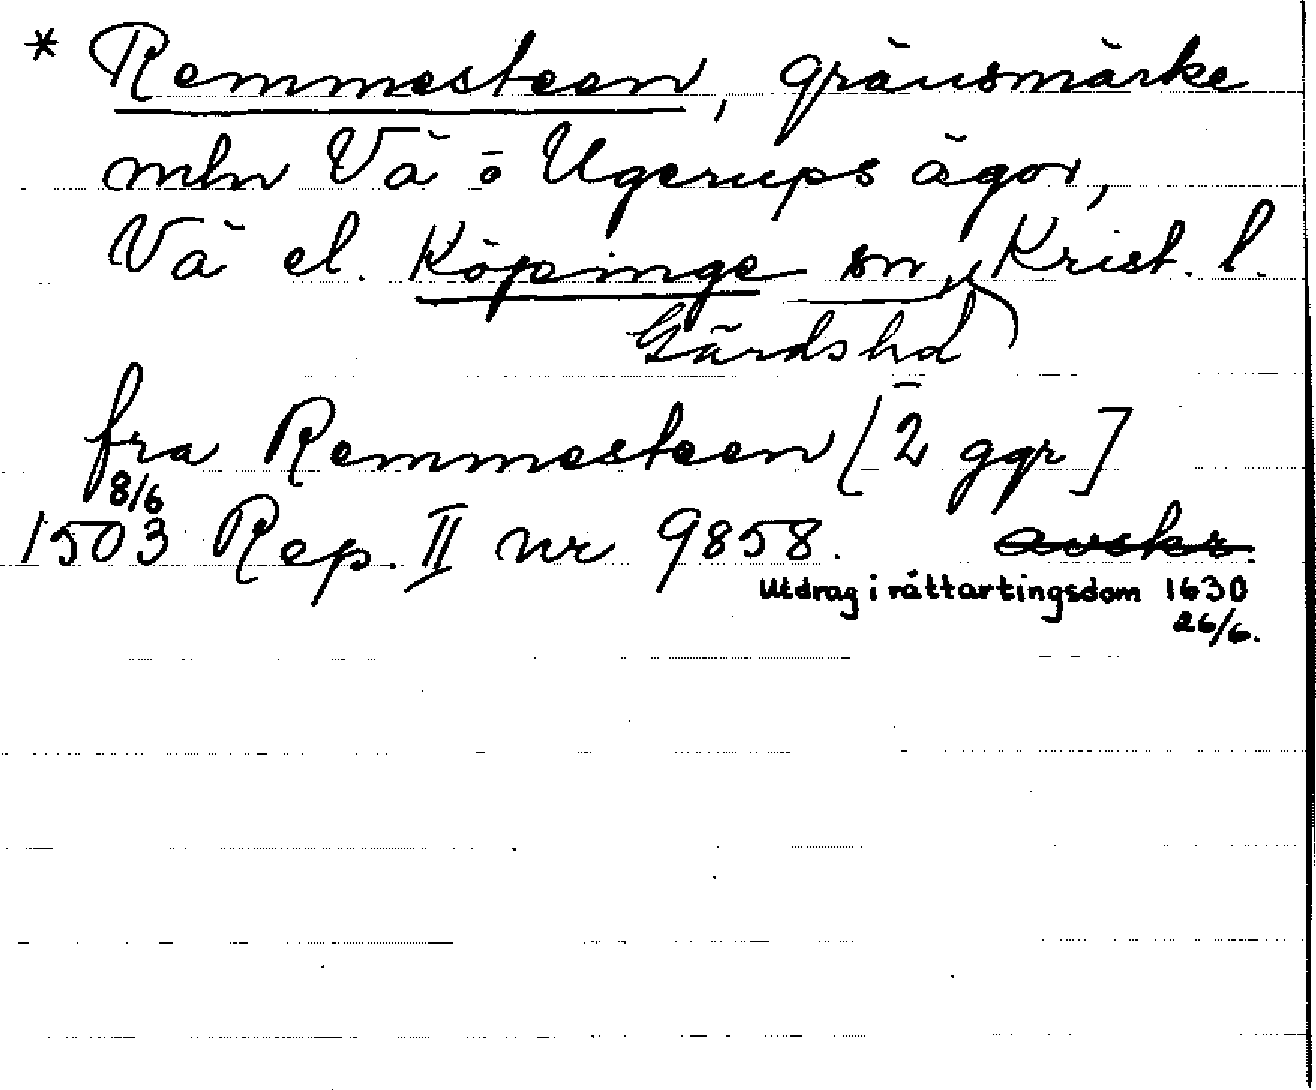 * Remmesteen, gränsmärke
mln Vä o Ugerups ägor,
Vä el. Köpinge sn, Krist. l.
Gärds hd
fra Remmesteen [2 ggr]
8/6
1503 Rep. II nr 9858. avskr.
Utdrag i råttartingsdom 1630
26/6.